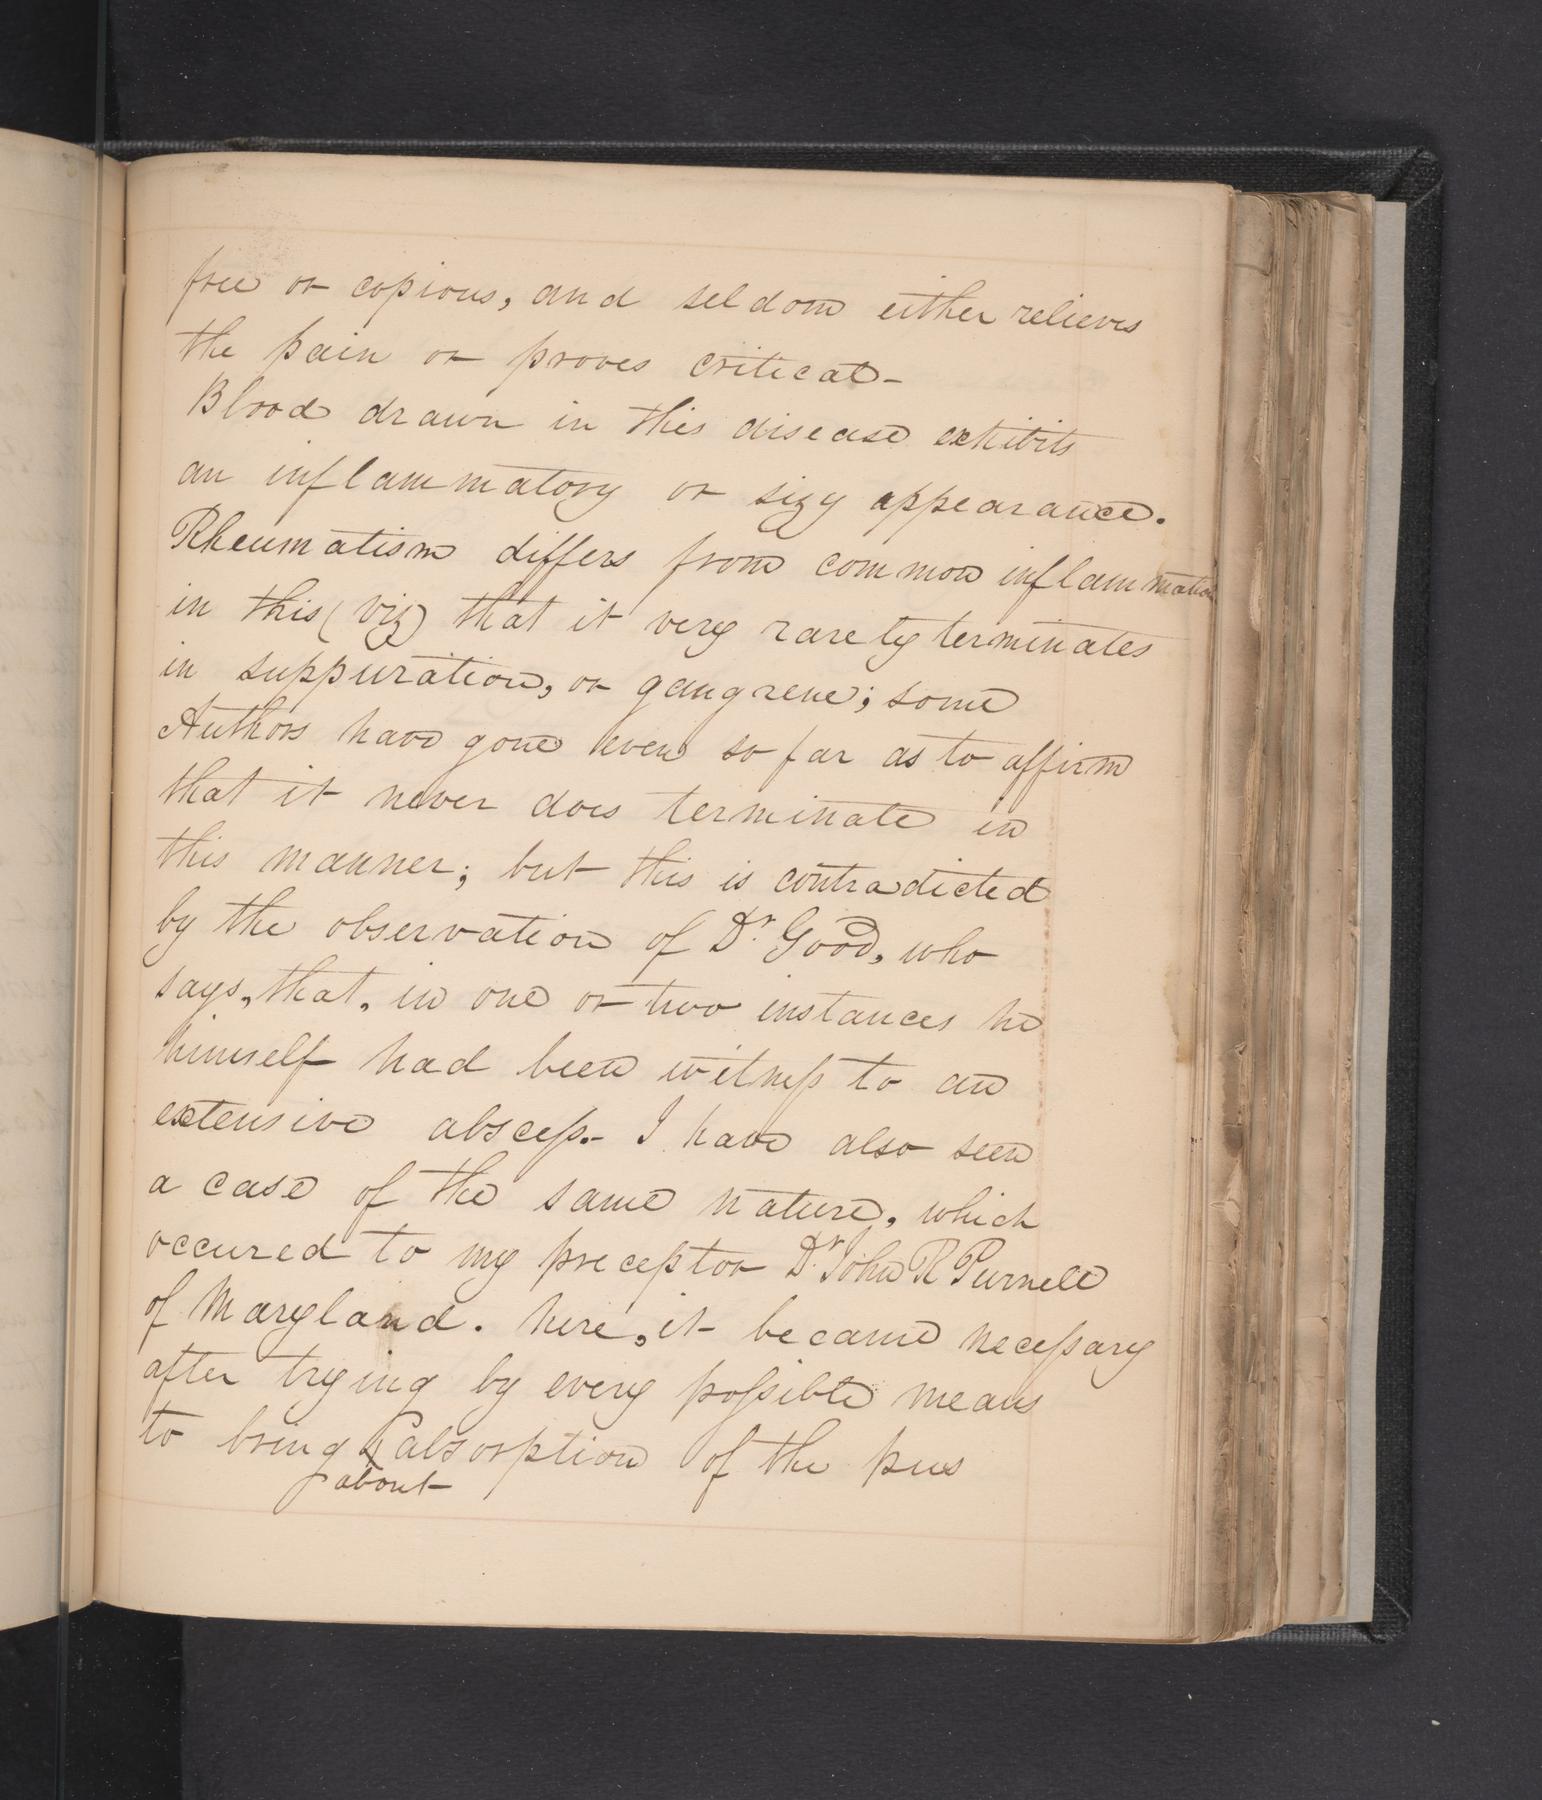 free or copious, and seldom either relieves
the pain or proves critical-
Blood drawn in this disease exhibits
an inflammatory or sizy appearance.
Rheumatism differs from common inflammation
in this (viz) that it very rarely terminates
in suppuration, or gangrene; some
Authors have gone even so far as to affirm
that it never does terminate in
this manner; but this is contradicted
by the observation of Dr. Good, who
says, that, in one or two instances he
himself had been witness to an
extensive abscess.- I have also seen
a case of the same nature, which
occured to my preceptor Dr. John R Purnell
of Maryland. here, it became necessary
after trying by every possible means
to bring absorption of the pus
about